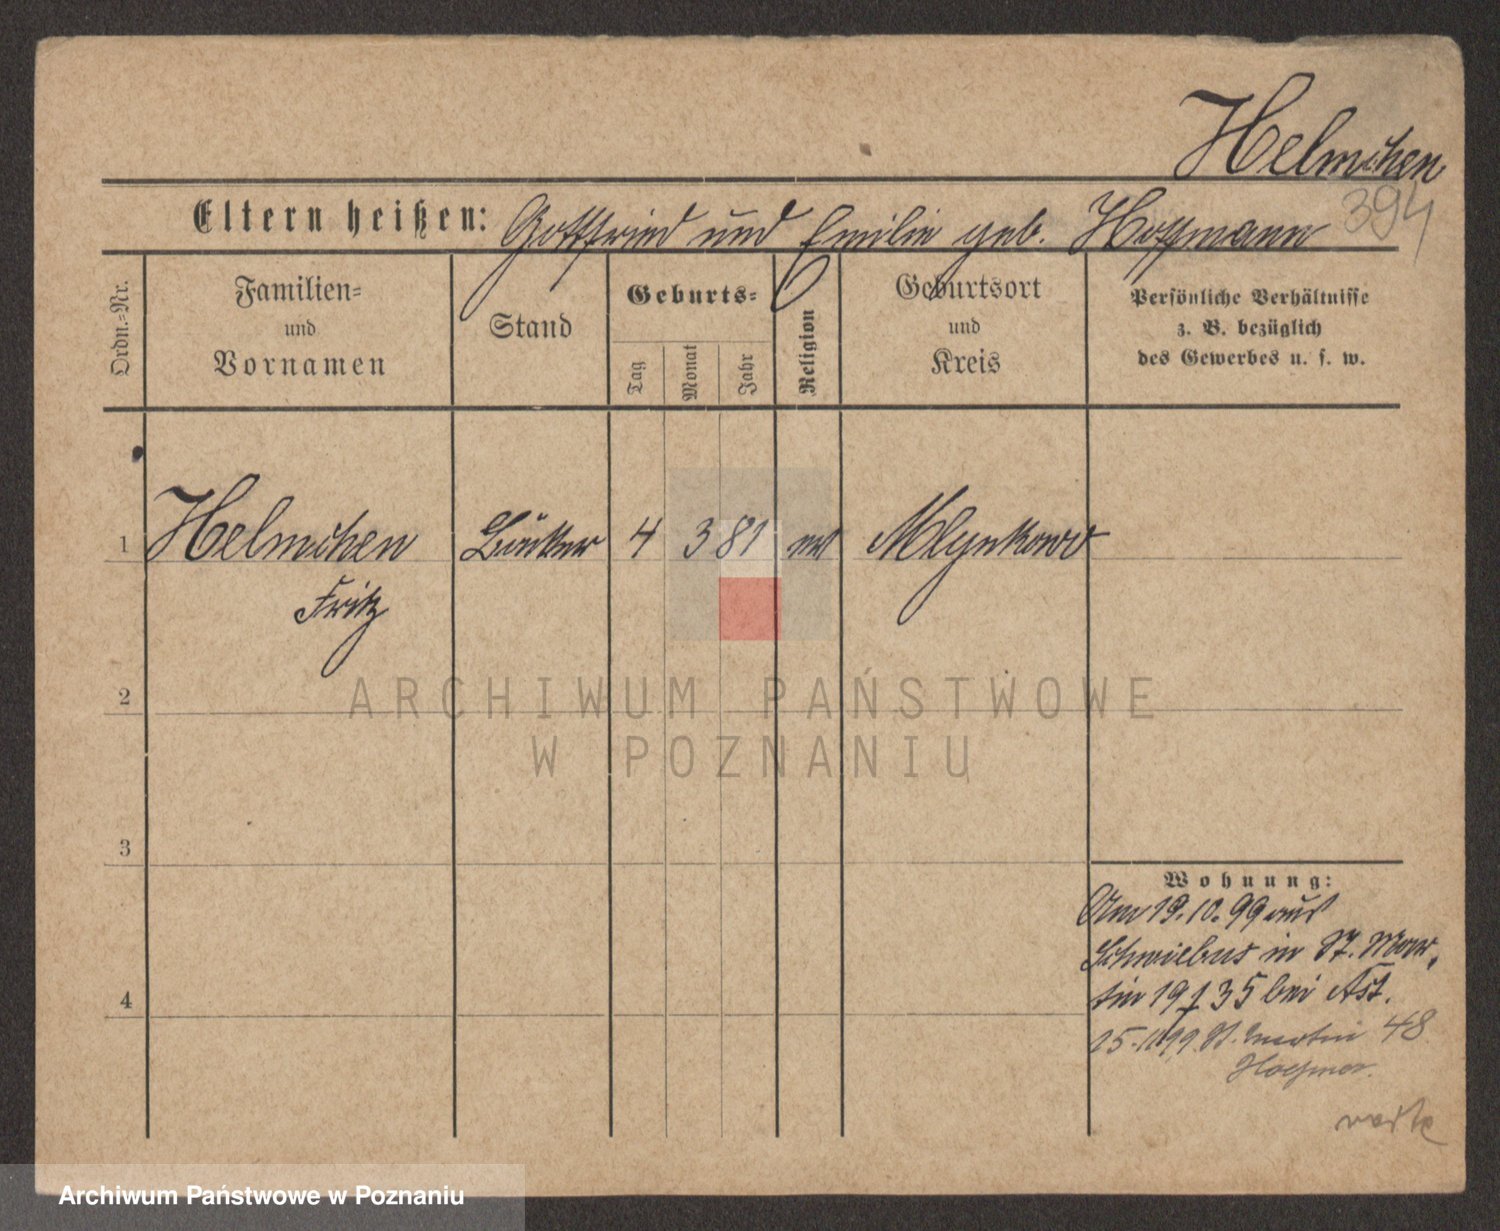 Helmchen
394
Eltern heißen: Gottfried und Emilie geb. Hoffmann
Ordn.-Nr.
Familien-
und
Vornamen
Stand
Geburts-
Tag
Monat
Jahr
Religion
Geburtsort
und
Kreis
Persönliche Verhältnisse
z. B. bezüglich
des Gewerbes u. s. w.
1
Helmchen
Fritz
4
3
81
Mlynkowo
2
3
4
Wohnung:
Am 19.10.99 aus
Schwiebus in St. Mar-
tin 19 35 bei
St. Martin 48
ARCHIWUM PAŃSTWOWE
W POZNANIU
Archiwum Państwowe w Poznaniu